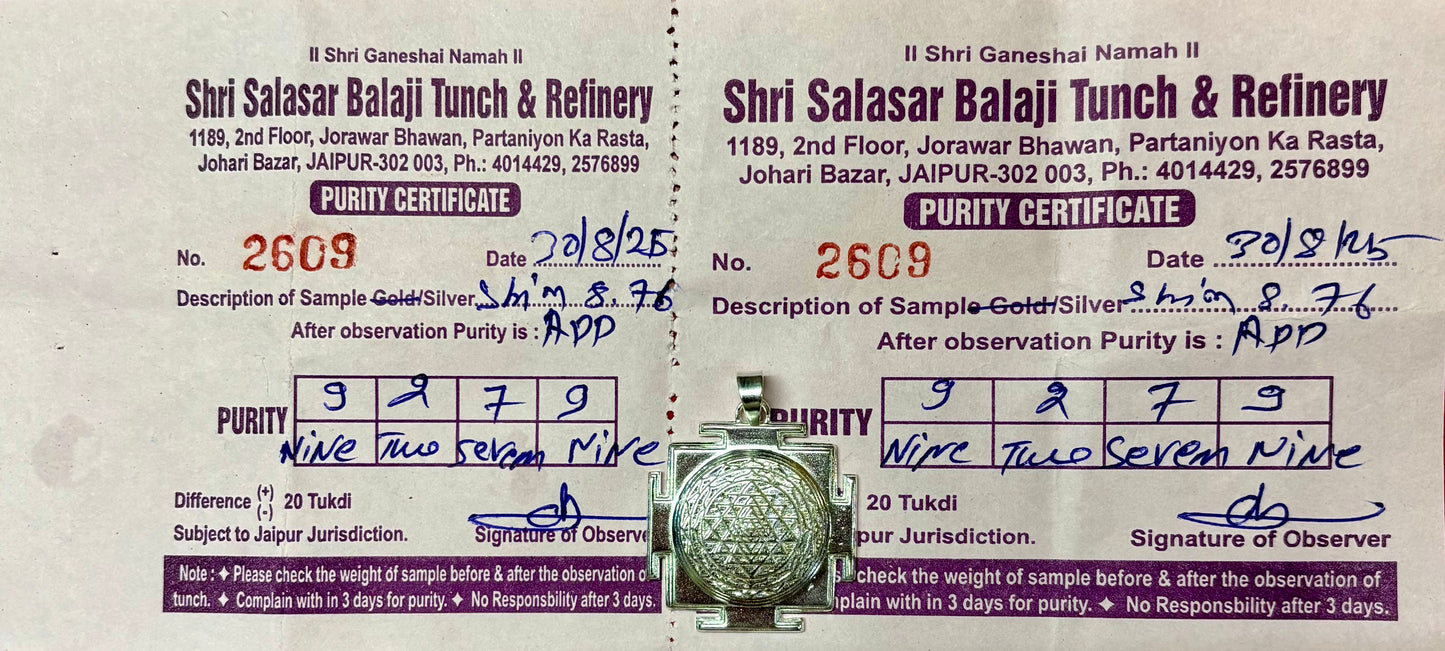 ll Shri Ganeshai Namah ll
Shri Salasar Balaji Tunch & Refinery
1189, 2nd Floor, Jorawar Bhawan, Partaniyon Ka Rasta,
Johari Bazar, JAIPUR-302 003, Ph.: 4014429, 2576899
PURITY CERTIFICATE
No. 2609 Date 30/8/25
Description of Sample Gold/Silver 8.76
After observation Purity is : App
PURITY 9 2 7 9
Nine Two Seven Nine
Difference (+) (-) 20 Tukdi
Subject to Jaipur Jurisdiction. Signature of Observe
Note : ✦ Please check the weight of sample before & after the observation o
tunch. ✦ Complain with in 3 days for purity. ✦ No Responsbility after 3 days.
ll Shri Ganeshai Namah ll
Shri Salasar Balaji Tunch & Refinery
1189, 2nd Floor, Jorawar Bhawan, Partaniyon Ka Rasta,
Johari Bazar, JAIPUR-302 003, Ph.: 4014429, 2576899
PURITY CERTIFICATE
No. 2609 Date 30/8/25
Description of Sample Gold/Silver 8.76
After observation Purity is : App
PURITY 9 2 7 9
Nine Two Seven Nine
20 Tukdi
pur Jurisdiction. Signature of Observer
check the weight of sample before & after the observation of
mplain with in 3 days for purity. ✦ No Responsbility after 3 days.